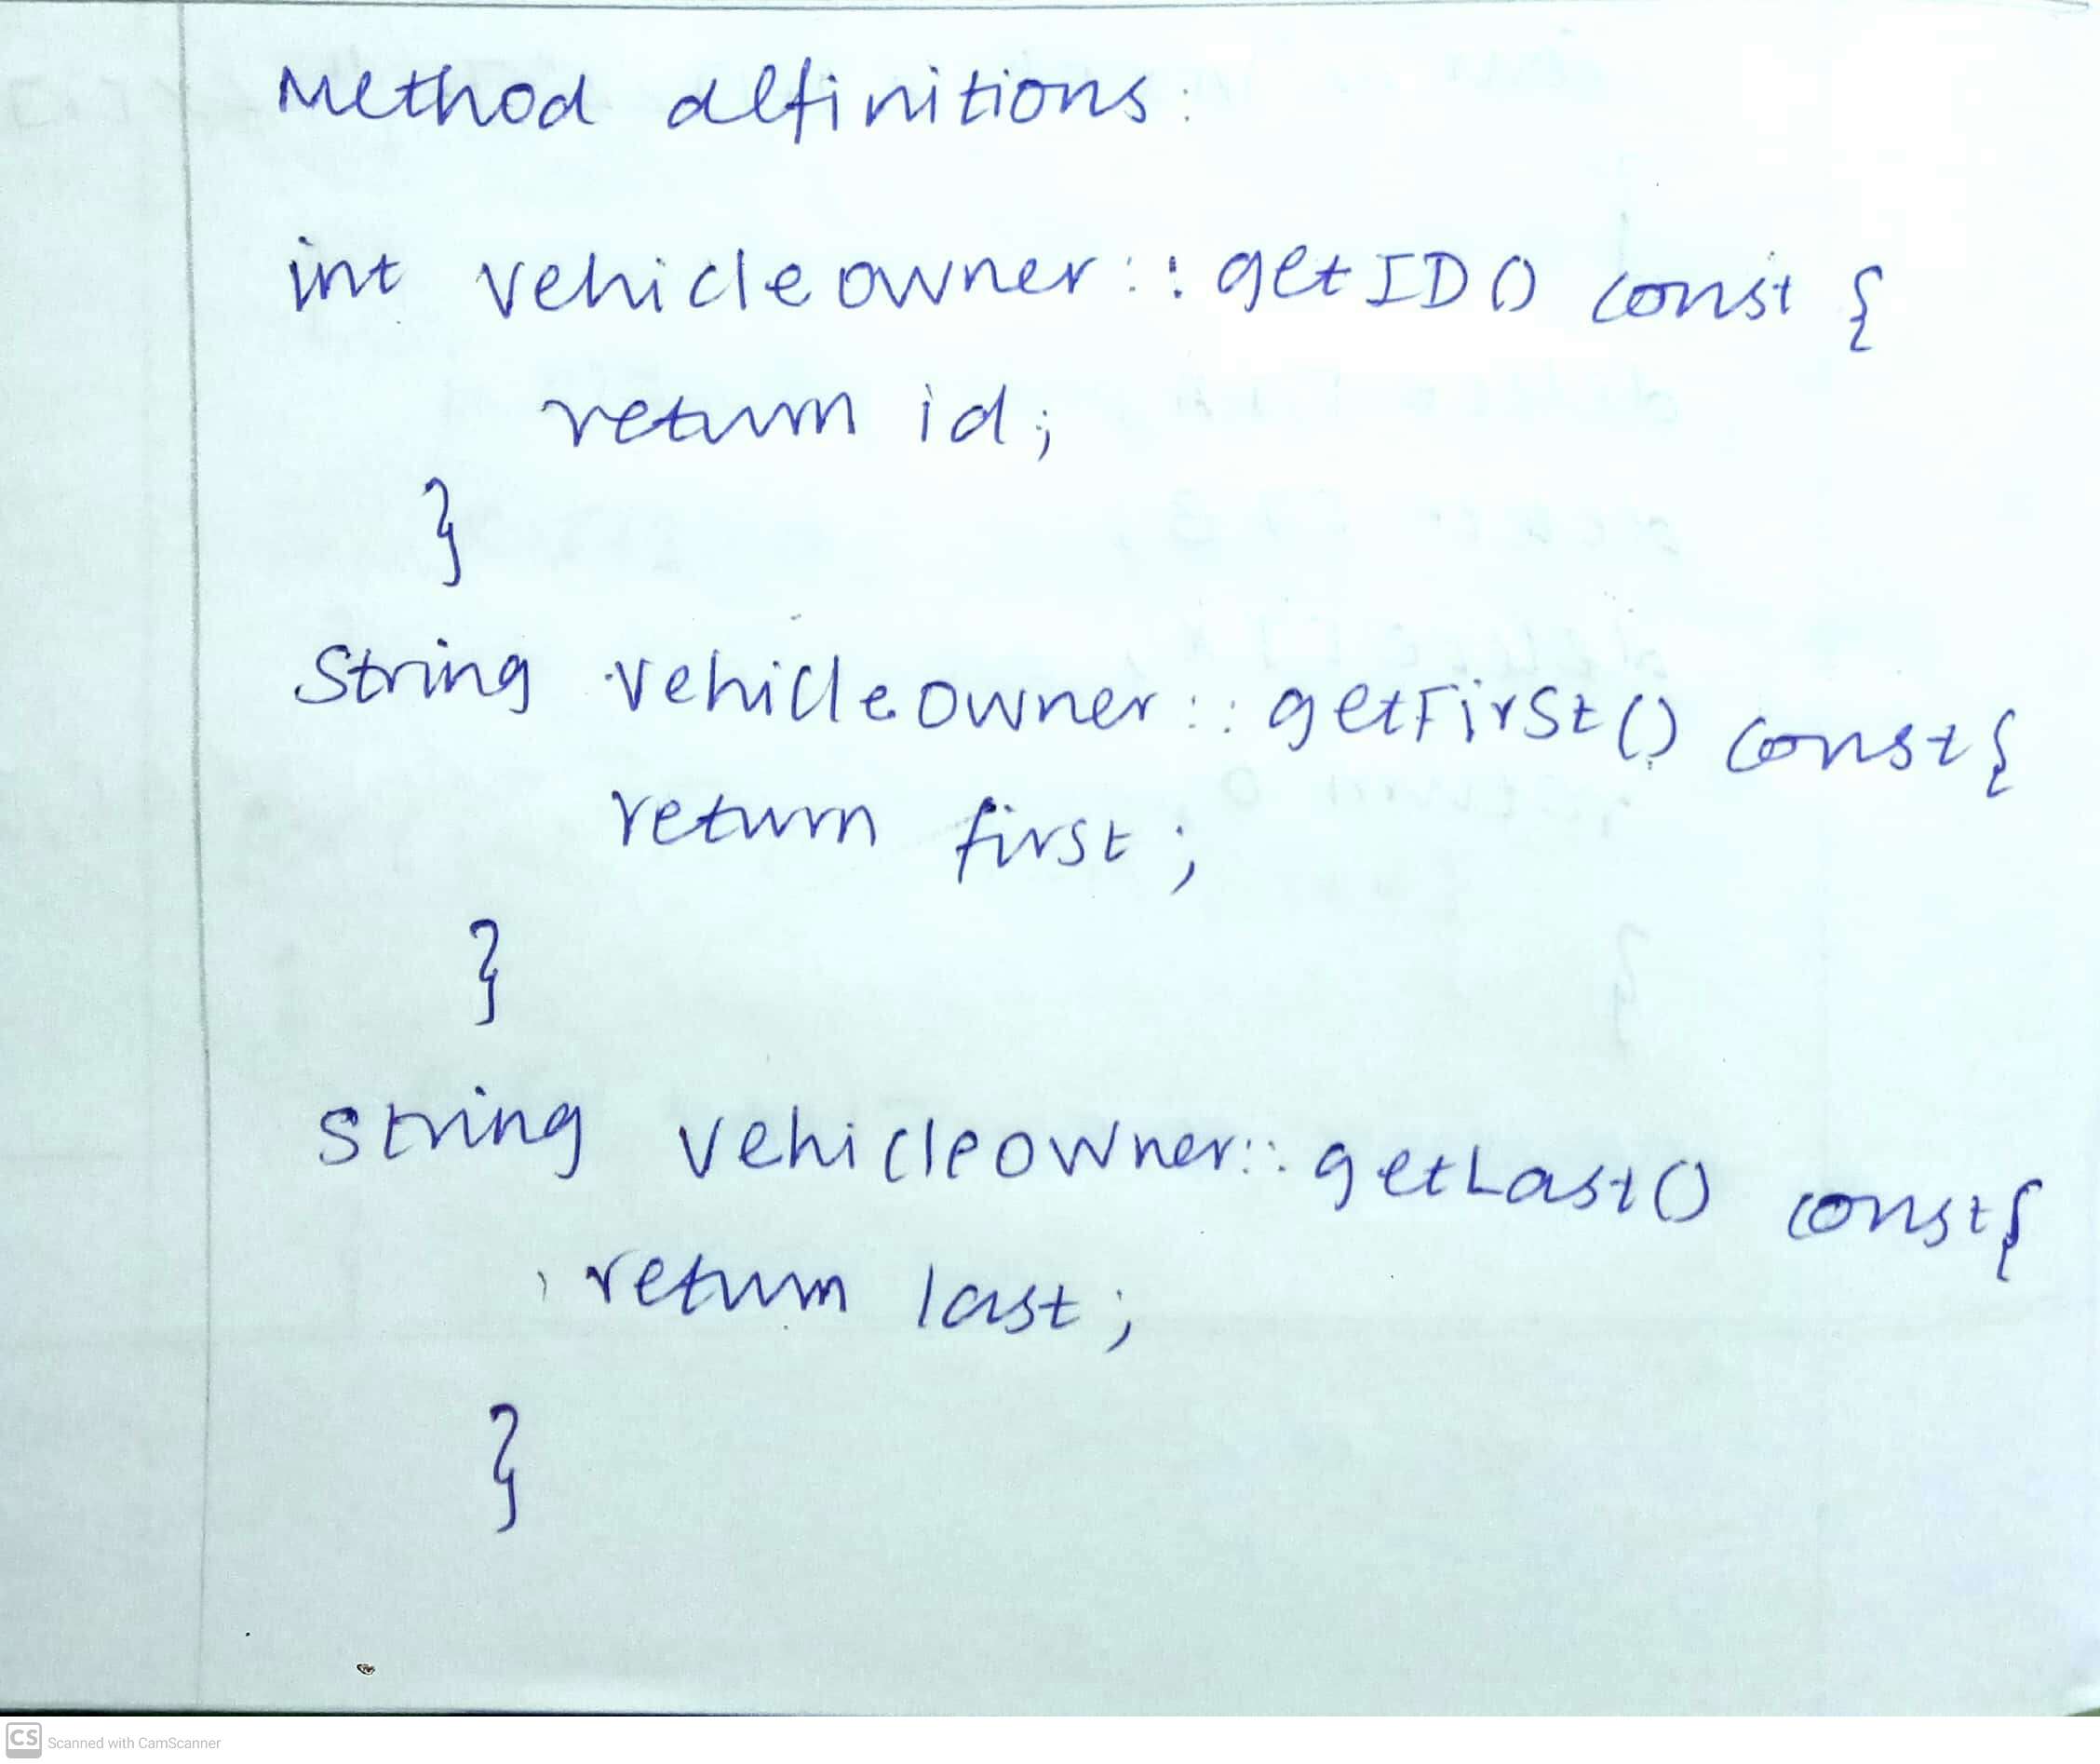 Method definitions:
int vehicleowner:: getID() const {
return id;
}
String vehicleowner:: getFirst() const{
return first;
}
string vehicleowner:: getLast() const{
return last;
}
CS Scanned with CamScanner